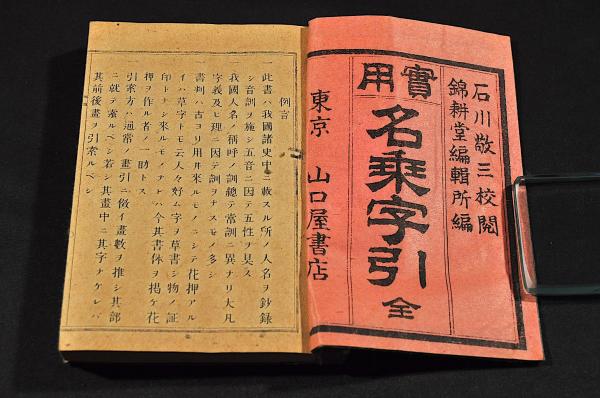 實用
石川敬三校閲
錦耕堂編輯所編
名乗字引 全
東京 山口屋書店
例言
一 此書ハ我國諸史中ニ載スル所ノ人名ヲ鈔録
シ音訓ヲ施シ五音ニ因テ五性ヲ具ス
我國人名ノ稱呼ノ訓總テ常訓ニ異ナリ大凡
字義及ヒ理ニ因テ訓ヲナスモノ多シ
一 書判ハ古ヨリ用ヰ來ルモノニシテ花押アル
イハ草字トモ云人々好ム字ヲ草書シ物ノ証
印トナシ來ルモノナレハ今其書体ヲ掲ケ花
押ヲ作ル者ノ一助トス
引索方ハ通常ノ畫引ニ傚イ畫數ヲ推シ其部
ニ就テ索ルベシ若シ其畫中ニ其字ナケレバ
其前後畫ヲ引索ルベシ